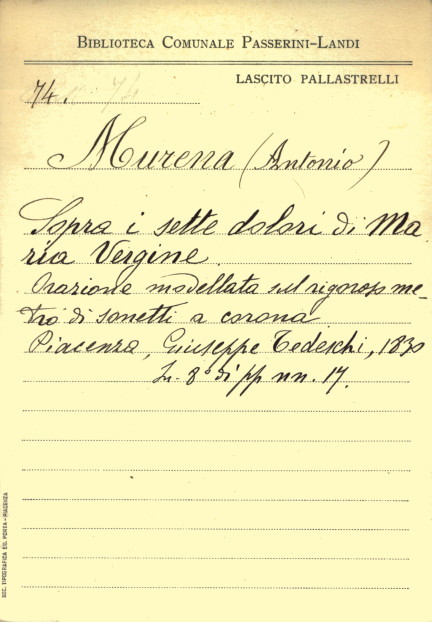 BIBLIOTECA COMUNALE PASSERINI-LANDI
LASCITO PALLASTRELLI
74. 74
Murena (Antonio)
Sopra i sette dolori di Ma
ria Vergine
Orazione modellata sul rigoroso me-
tro di sonetti a corona
Piacenza, Giuseppe Tedeschi, 1830
In-8° di pp nn. 17.
SOC. TIPOGRAFICA ED. PORTA - PIACENZA